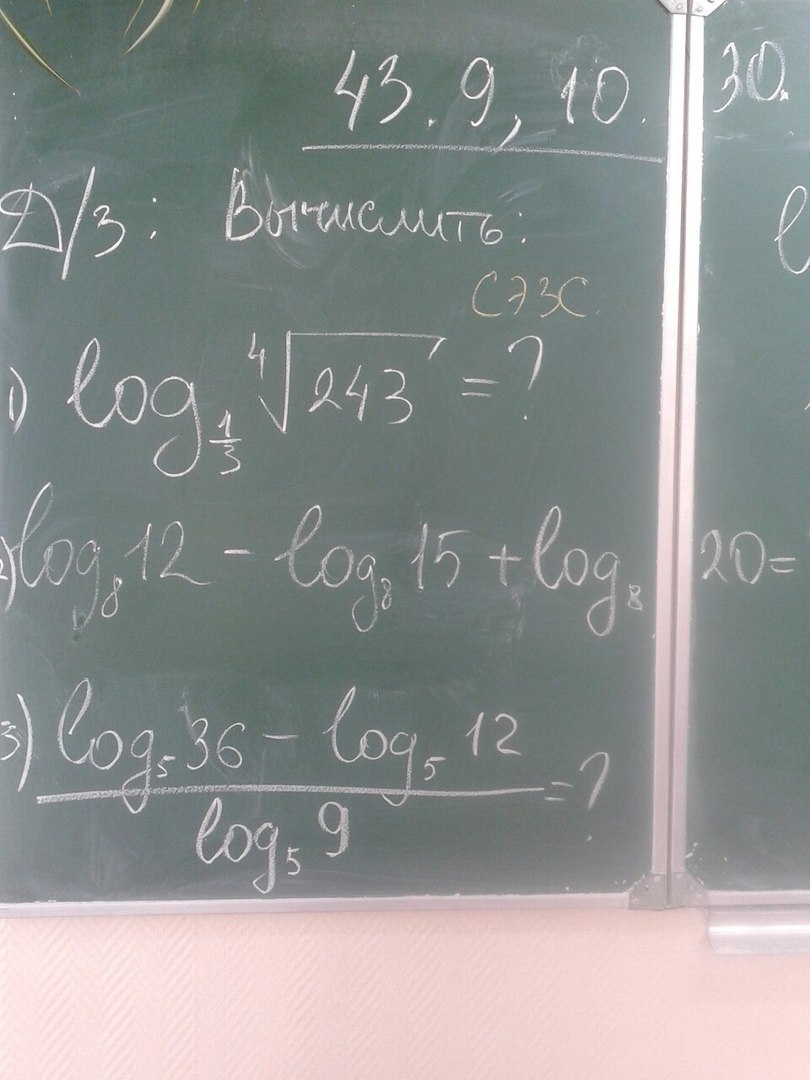 43. 9, 10.
30.
Д/З: Вычислить:
1) log_{1/3} ⁴√243 = ?
2) log₈12 - log₈15 + log₈20 =
3) (log₅36 - log₅12) / log₅9 = ?